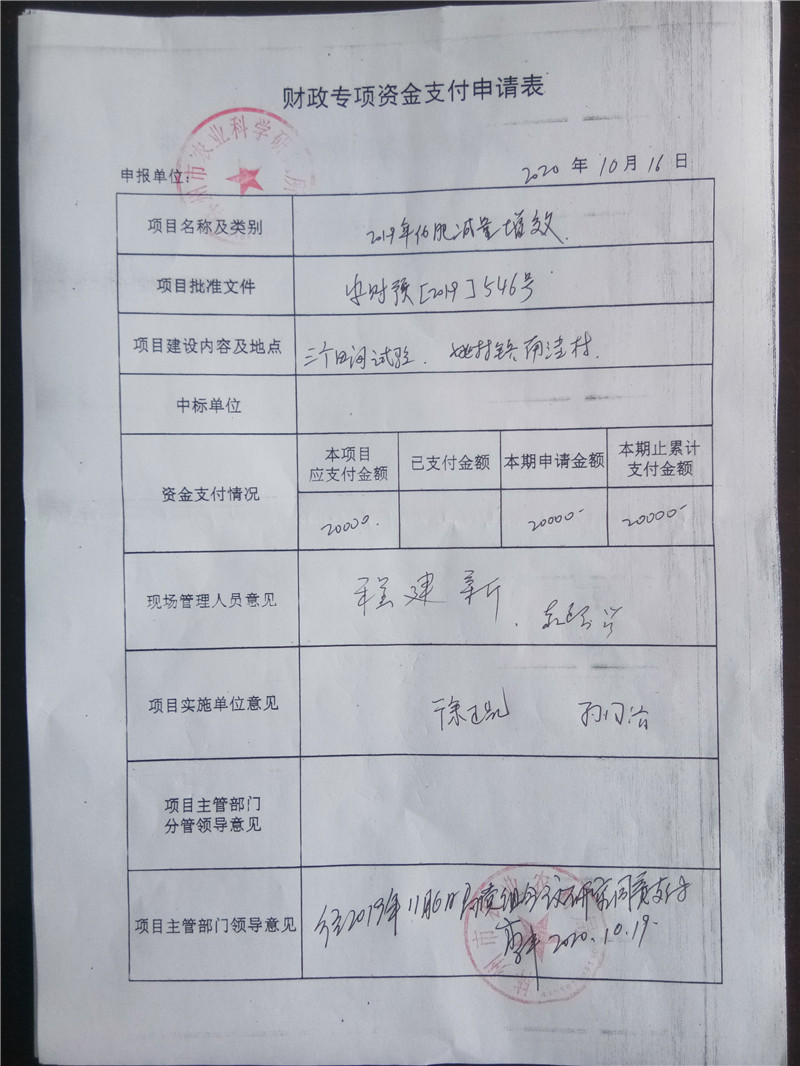 财政专项资金支付申请表
市农业科学研 所
申报单位：
2020 年 10 月 16 日
项目名称及类别
2019年化肥减量增效
项目批准文件
财预[2019]546号
项目建设内容及地点
三个田间试验. 姚村镇 洼村.
中标单位
资金支付情况
本项目
应支付金额
已支付金额
本期申请金额
本期止累计
支付金额
20000.
20000-
20000-
现场管理人员意见
程建新
项目实施单位意见
徐
项目主管部门
分管领导意见
项目主管部门领导意见
2019年11月6日局党组会议研究同意支付
2020.10.19.
州市农业农